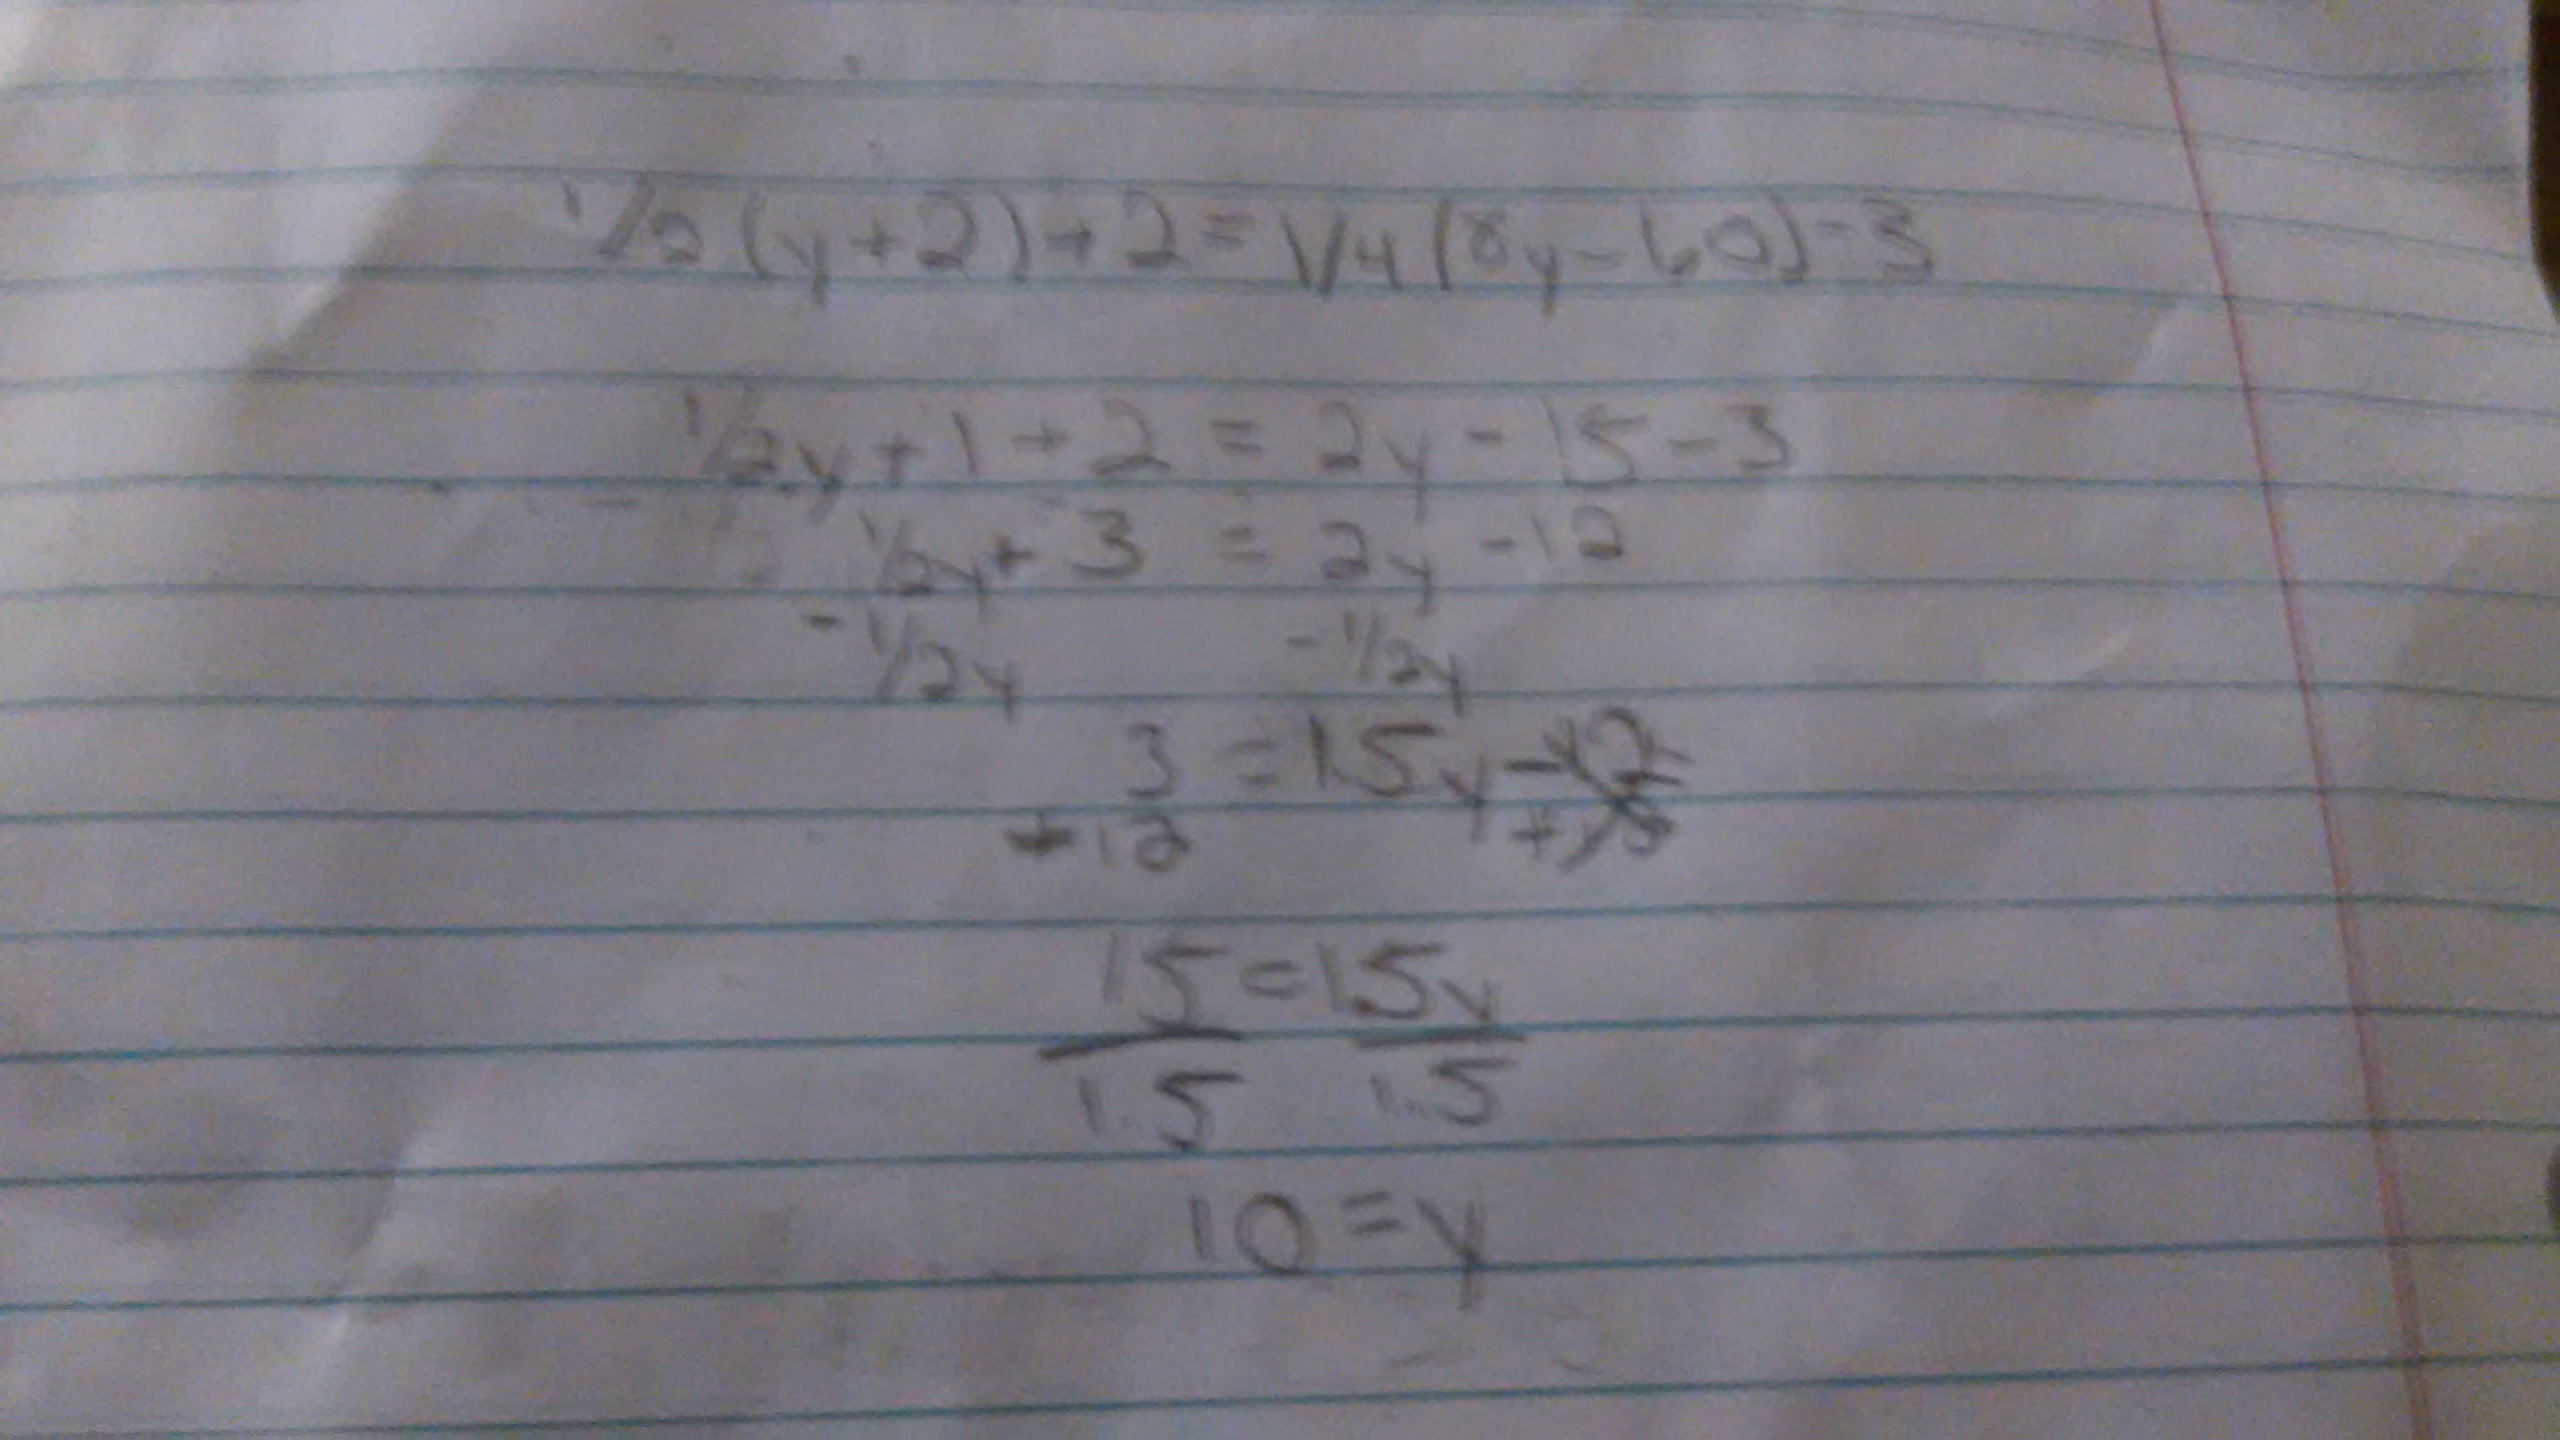 1/2 (y+2)+2 = 1/4 (8y-60)-3
1/2y+1+2 = 2y-15-3
1/2y+3 = 2y-12
-1/2y -1/2y
3 = 1.5y-12
+12 +12
15 = 1.5y
1.5 1.5
10 = y